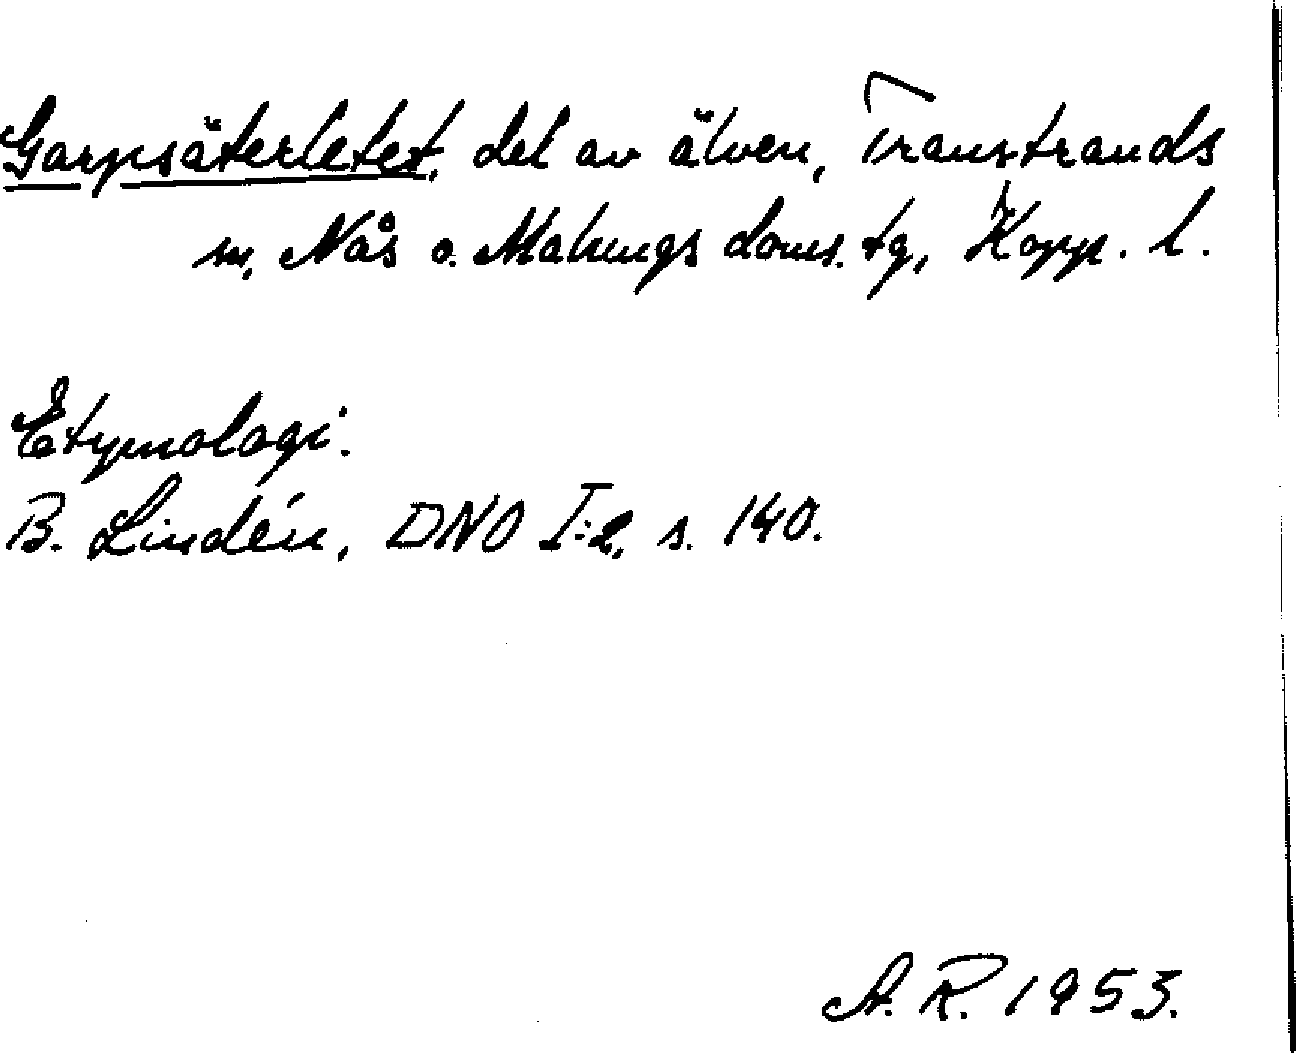 Garpsäterletet, del av älven, Transtrands
sn, Nås o. Malungs doms. tg, Kopp. l.
Etymologi.
B. Lindén, DNO I:2, s. 140.
A. R. 1953.